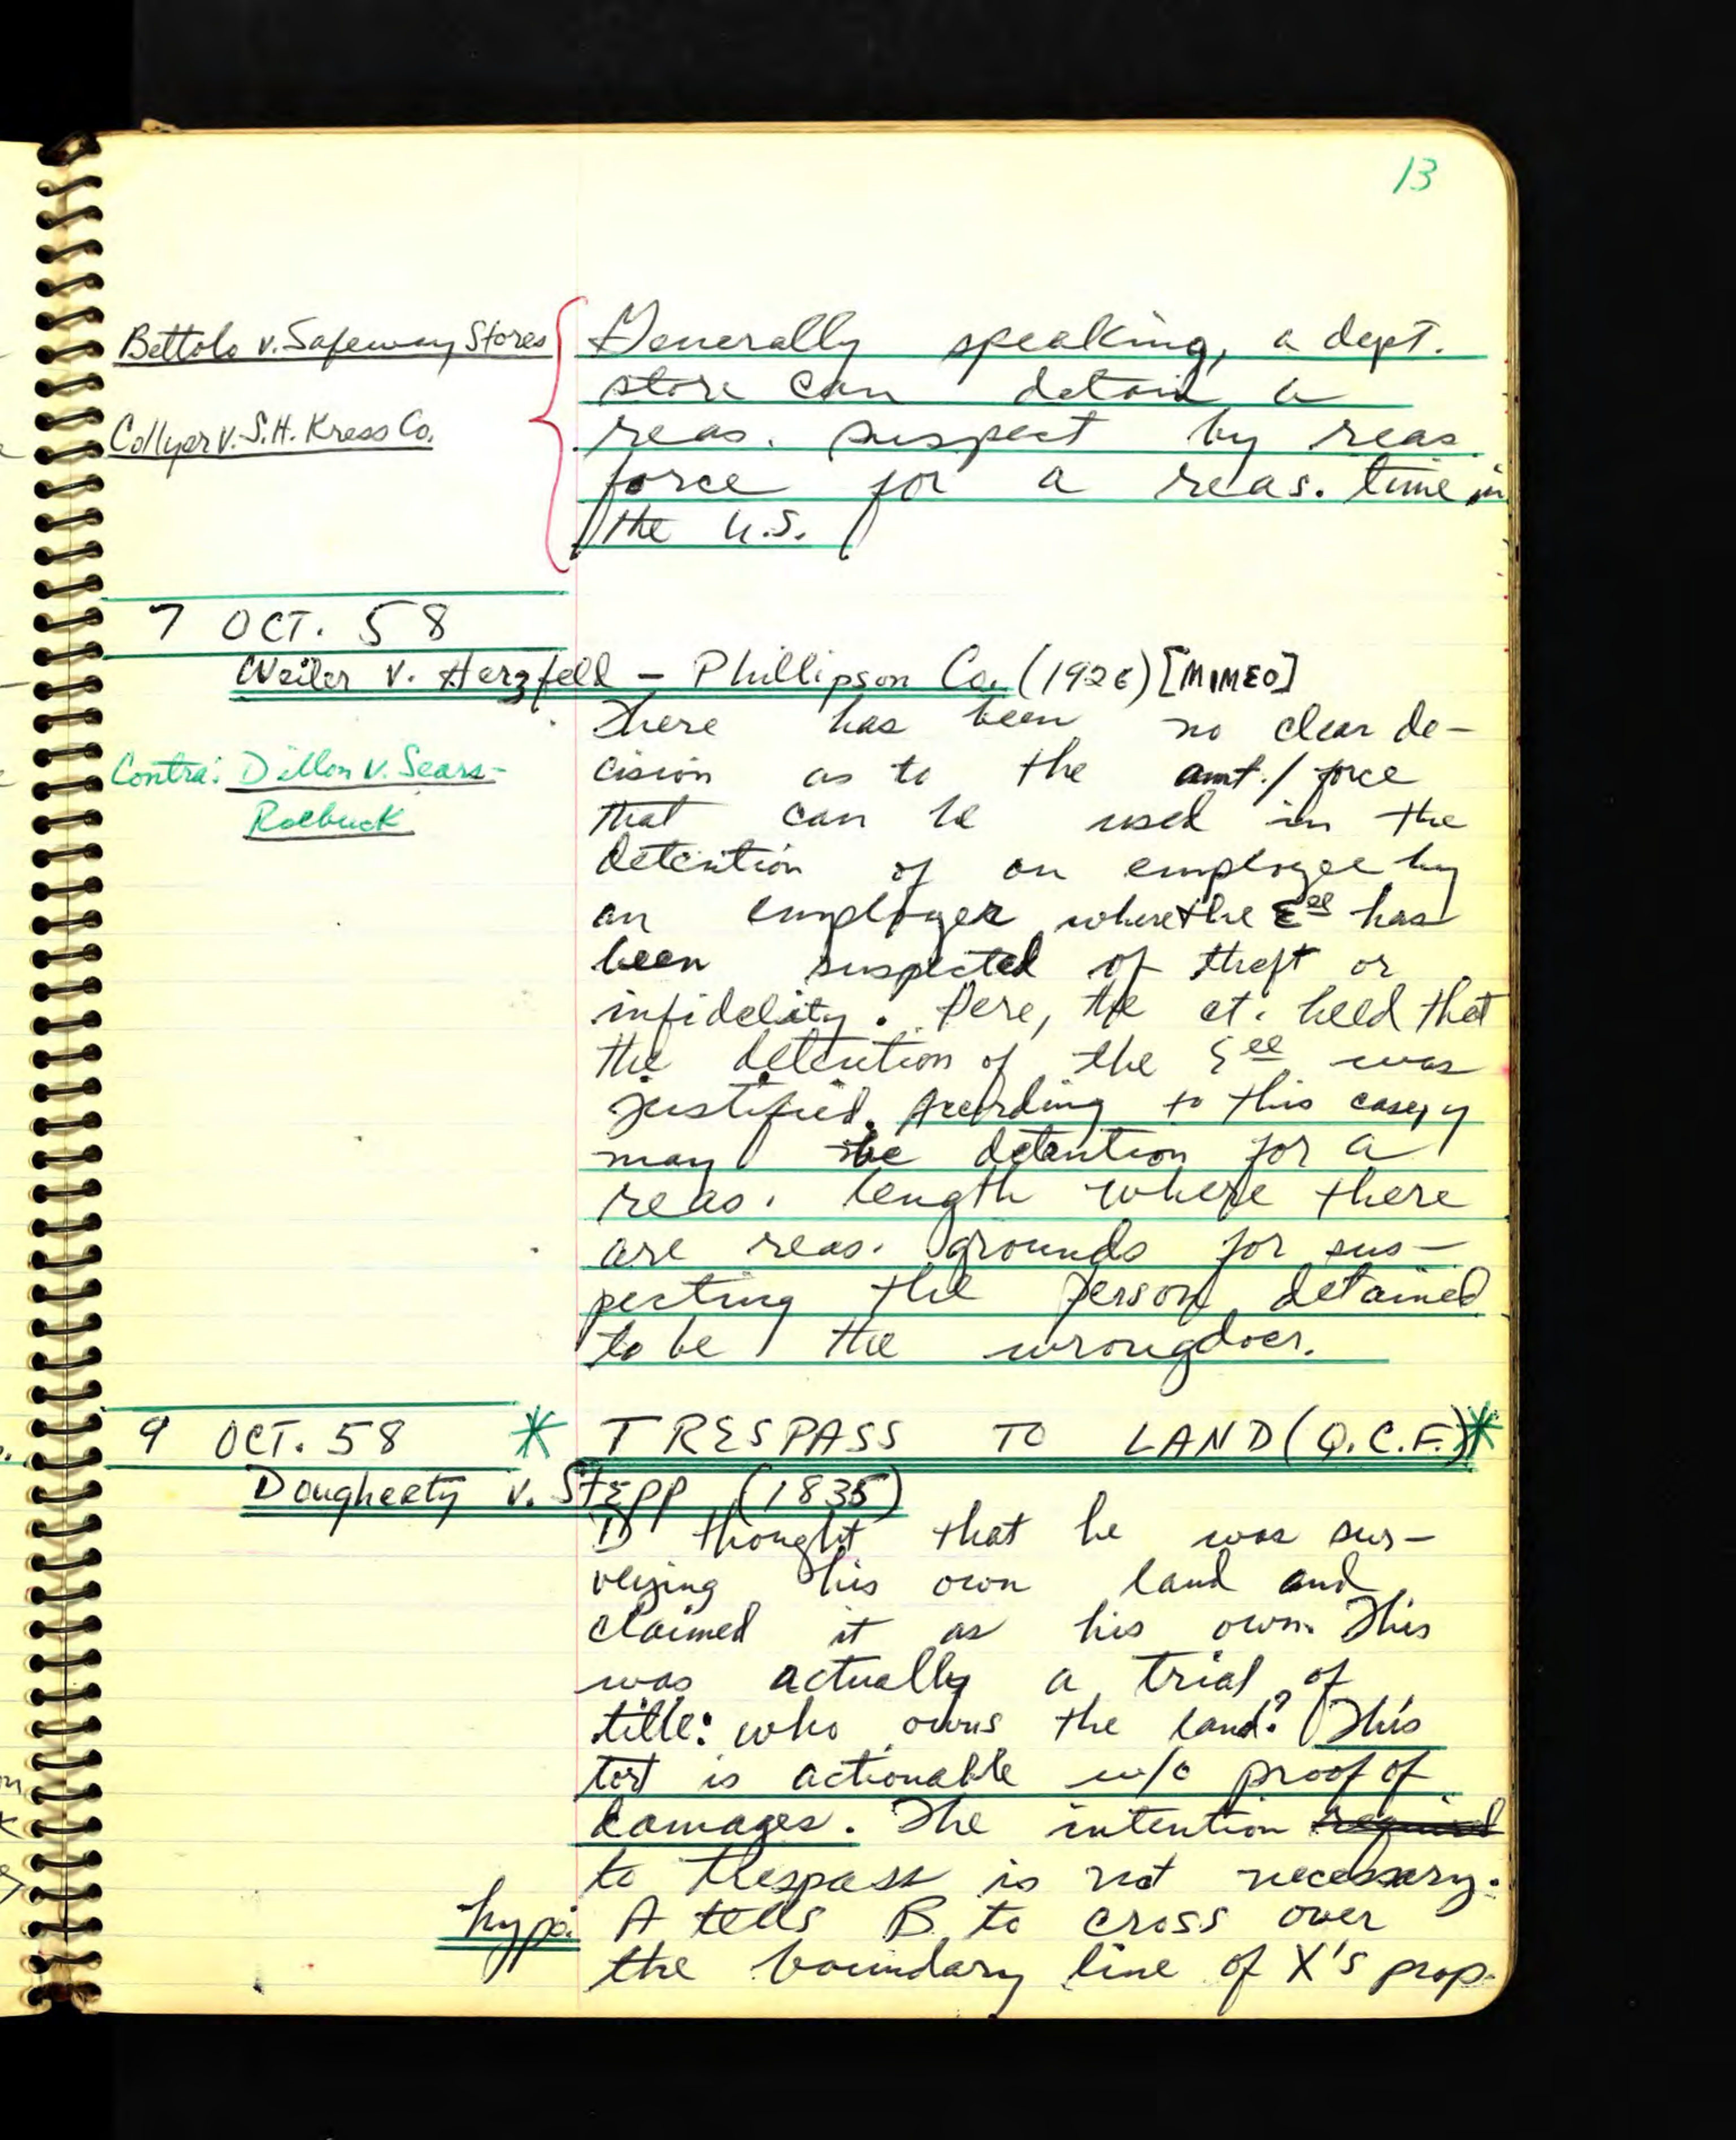 13
Bettolo v. Safeway Stores
Collyer v. S.H. Kress Co.
Generally speaking, a dept.
store can detain a
reas. suspect by reas
force for a reas. time in
the U.S.
7 OCT. 58
Weiler v. Herzfeld - Phillipson Co. (1926) [MIMEO]
Contra: Dillon v. Sears-
Roebuck
There has been no clear de-
cision as to the amt./force
that can be used in the
detention of an employee by
an employer where the Eee has
been suspected of theft or
infidelity. Here, the ct. held that
the detention of the Eee was
justified. According to this case, y
may be detention for a
reas. length where there
are reas. grounds for sus-
pecting the person detained
to be the wrongdoer.
9 OCT. 58 * TRESPASS TO LAND (Q.C.F.) *
Dougherty v. Stepp (1835)
D thought that he was sur-
veying his own land and
claimed it as his own. This
was actually a trial of
title: who owns the land? This
tort is actionable w/o proof of
damages. The intention required
to trespass is not necessary.
hypo: A tells B to cross over
the boundary line of X's prop.